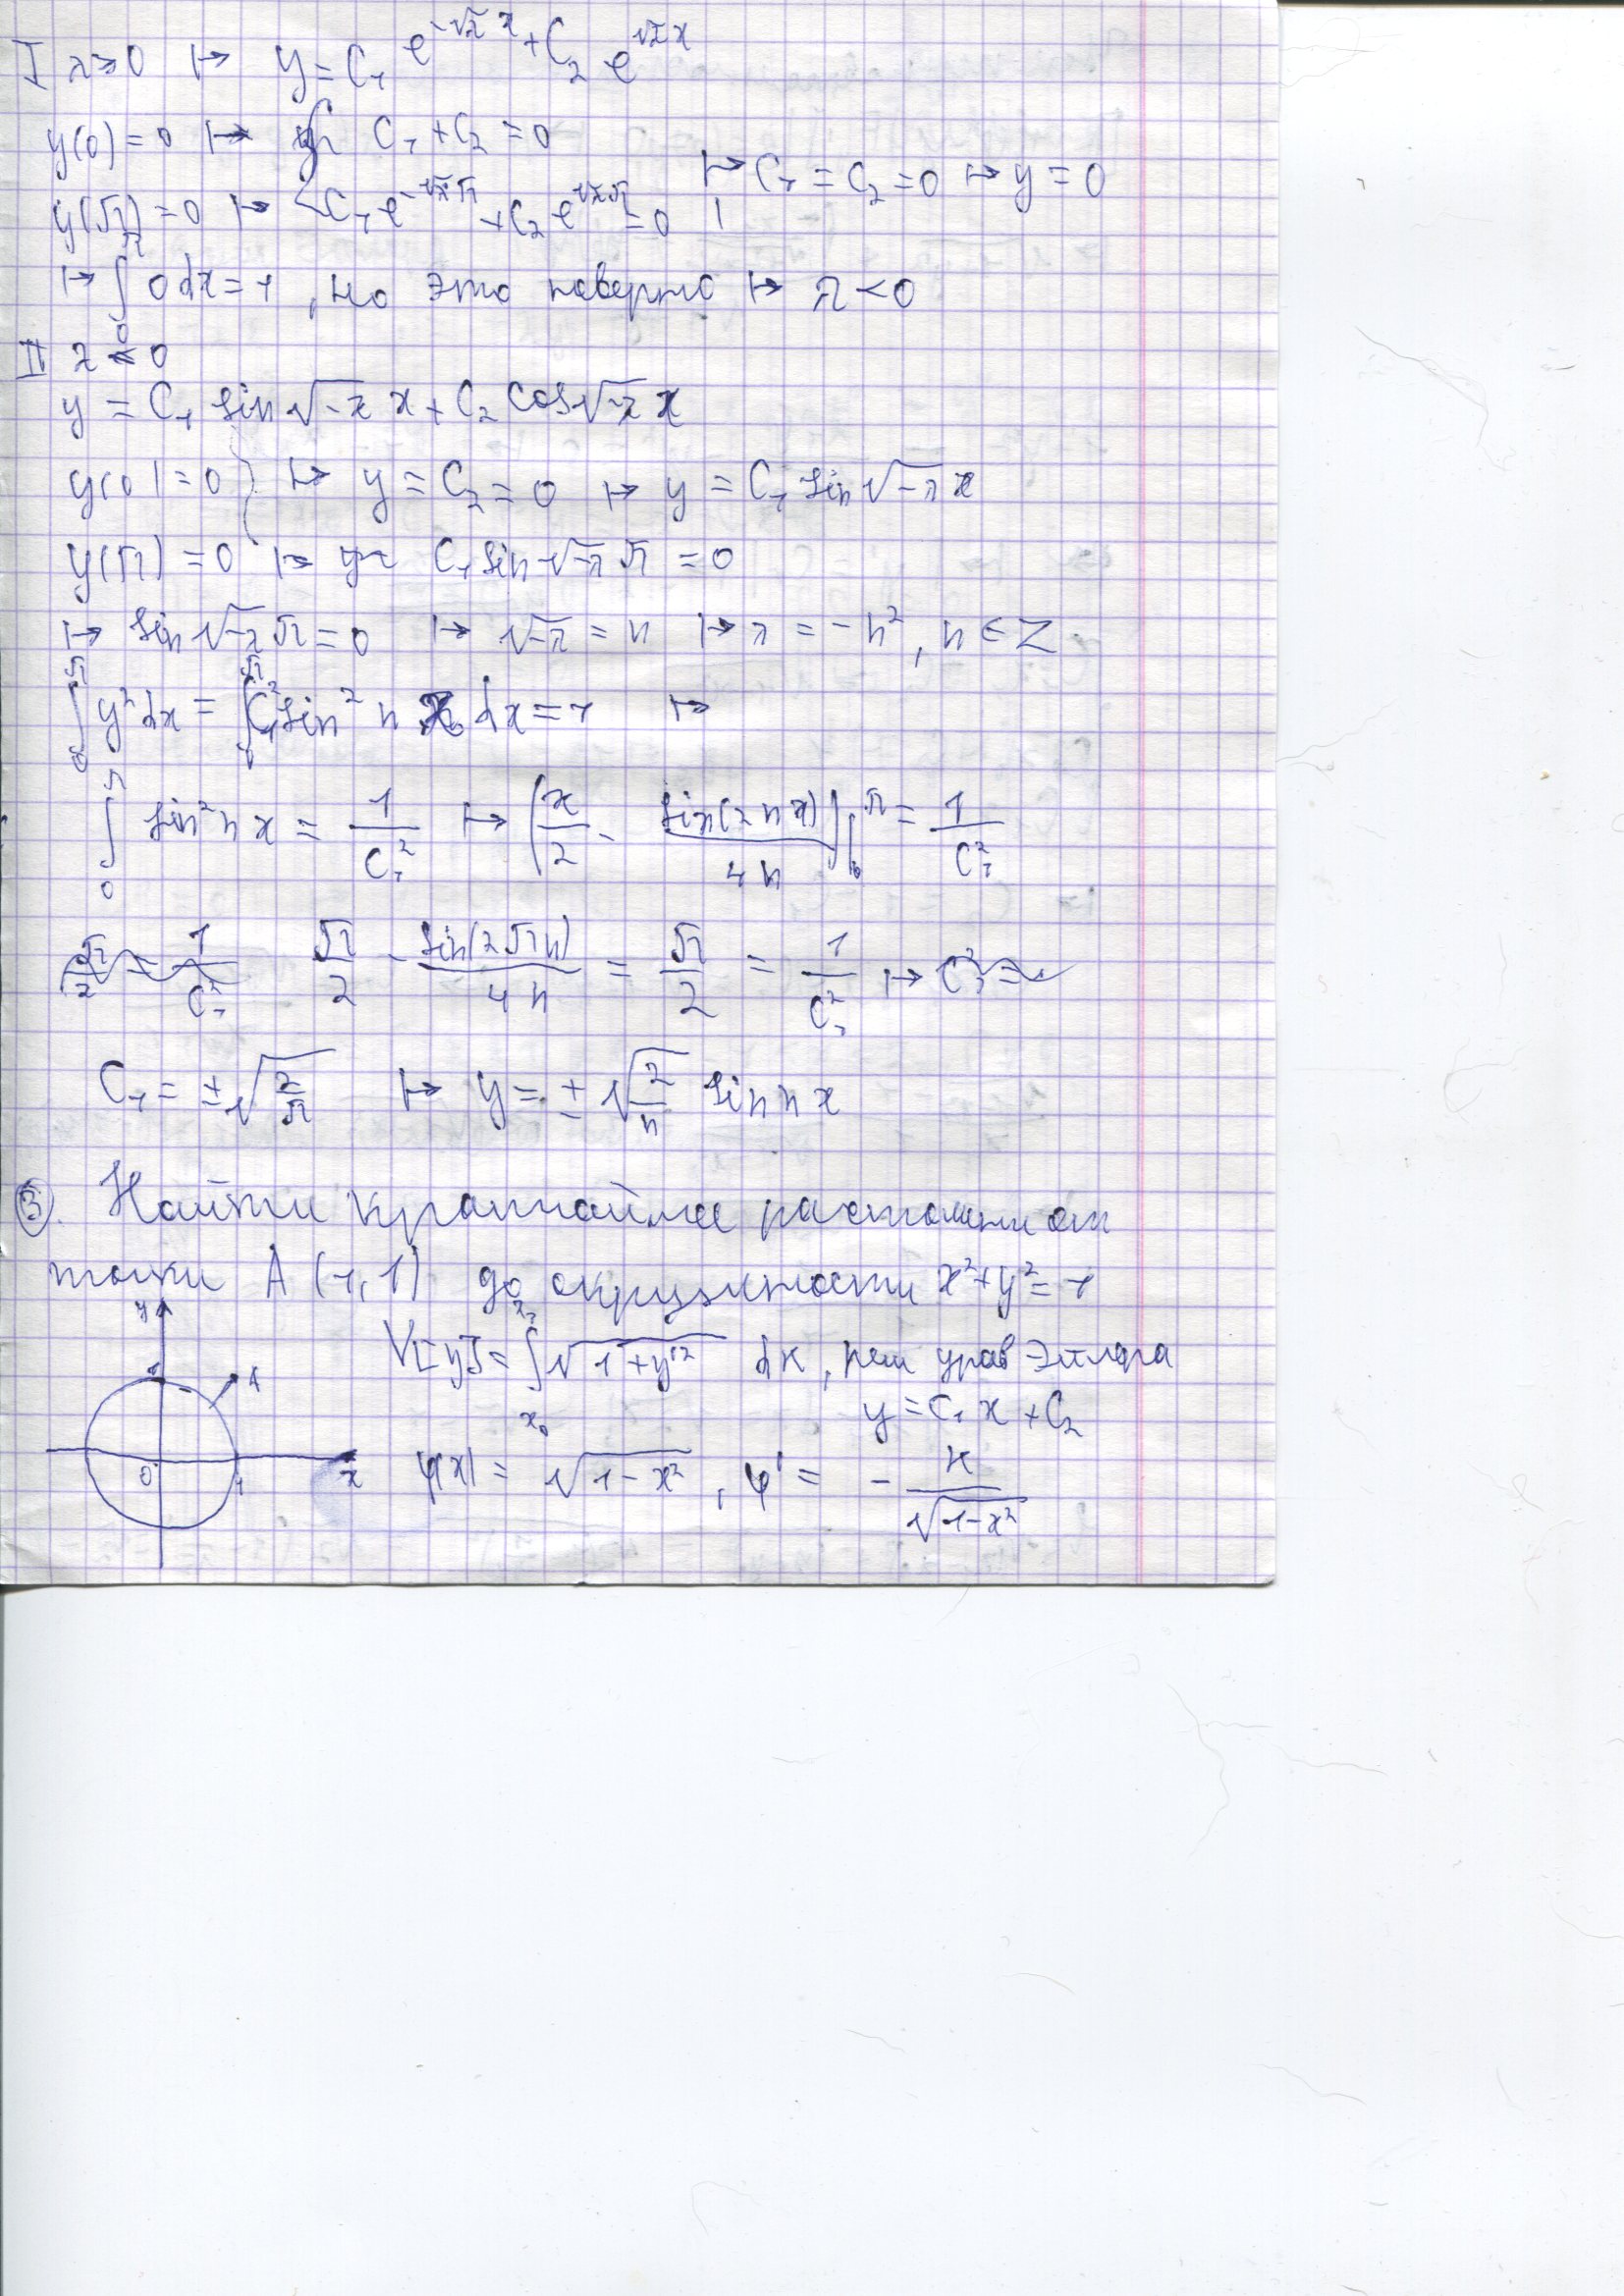 I λ≥0 ↦ y = C₁ e^{-√λ x} + C₂ e^{√λ x}
y(0) = 0 ↦ { C₁ + C₂ = 0
y(π) = 0 ↦ { C₁ e^{-√λ π} + C₂ e^{√λ π} = 0 ↦ C₁ = C₂ = 0 ↦ y = 0
↦ ∫₀^π 0 dx = 1, но это неверно ↦ λ < 0
II λ < 0
y = C₁ sin √-λ x + C₂ cos √-λ x
y(0) = 0 ↦ y = C₂ = 0 ↦ y = C₁ sin √-λ x
y(π) = 0 ↦ C₁ sin √-λ π = 0
↦ sin √-λ π = 0 ↦ √-λ = n ↦ λ = -n², n ∈ Z
∫₀^π y² dx = ∫₀^π C₁² sin² n x dx = 1 ↦
∫₀^π sin² n x = 1/C₁² ↦ (x/2 - sin(2nx)/4n)|₀^π = 1/C₁²
π/2 - sin(2πn)/4n = π/2 = 1/C₁² ↦
C₁ = ±√(2/π) ↦ y = ±√(2/π) sin n x
③. Найти кратчайшее расстояние от
точки A (1, 1) до окружности x² + y² = 1
y
1 A
V[y] = ∫_{x₀}^{x₁} √(1 + y'²) dx, реш урав Эйлера
y = C₁ x + C₂
0 1 x
φ(x) = √(1 - x²), φ' = - x/√(1-x²)